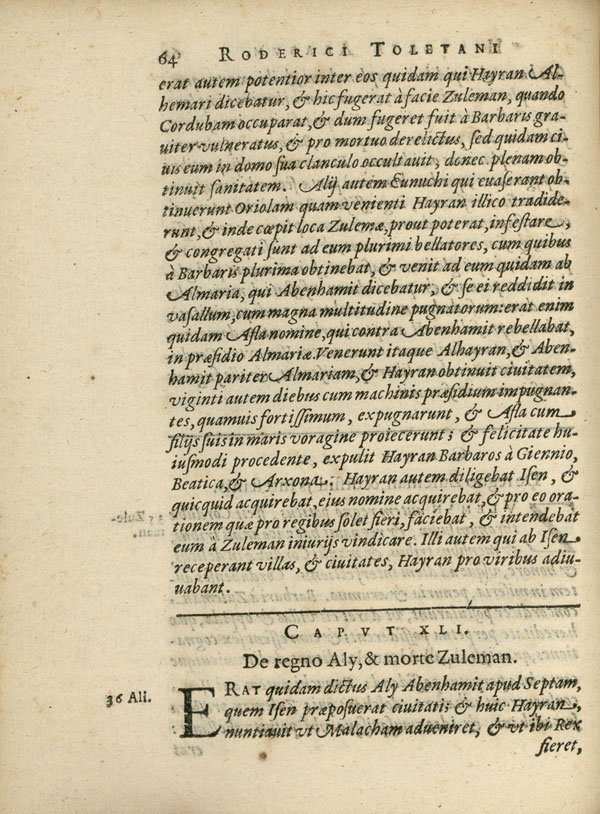 64 RODERICI TOLETANI
erat autem potentior inter eos quidam qui Hayran Al-
hemari dicebatur, & hic fugerat à facie Zuleman, quando
Cordubam occuparat, & dum fugeret fuit à Barbaris gra-
uiter vulneratus, & pro mortuo derelictus, sed quidam ci-
uis eum in domo sua clanculo occultauit, donec plenam ob-
tinuit sanitatem. Alij autem Eunuchi qui euaserant ob-
tinuerunt Oriolam quam venienti Hayran illico tradide-
runt, & inde cœpit loca Zulemæ, prout poterat, infestare,
& congregati sunt ad eum plurimi bellatores, cum quibus
à Barbaris plurima obtinebat, & venit ad eum quidam ab
Almaria, qui Abenhamit dicebatur, & se ei reddidit in
vasallum, cum magna multitudine pugnatorum: erat enim
quidam Afla nomine, qui contra Abenhamit rebellabat,
in præsidio Almariæ. Venerunt itaque Alhayran, & Aben-
hamit pariter Almariam, & Hayran obtinuit ciuitatem,
viginti autem diebus cum machinis præsidium impugnan-
tes, quamuis fortissimum, expugnarunt, & Afla cum
filijs suis in maris voragine proiecerunt; & felicitate hu-
iusmodi procedente, expulit Hayran Barbaros à Giennio,
Beatica, & Arxona. Hayran autem diligebat Isen, &
quicquid acquirebat, eius nomine acquirebat, & pro eo ora-
tionem quæ pro regibus solet fieri, faciebat, & intendebat
eum à Zuleman iniurijs vindicare. Illi autem qui ab Isen
receperant villas, & ciuitates, Hayran pro viribus adiu-
uabant.
CAPVT XLI.
De regno Aly, & morte Zuleman.
36 Ali.
ERAT quidam dictus Aly Abenhamit apud Septam,
quem Isen præposuerat ciuitatis & huic Hayran,
nuntiauit vt Malacham adueniret, & vt ibi Rex
fieret,